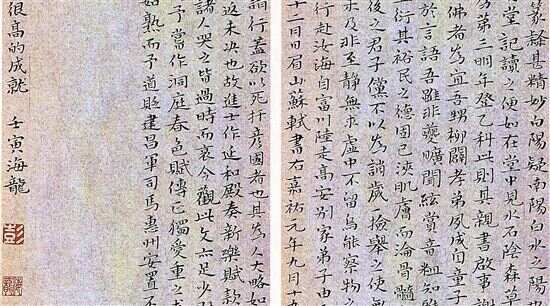 篆隸甚精妙白陽疑南陽白水之陽
堂記讀之便如在堂中見水石陰森草
為弟三明年登乙科此則其親書啟事
佛者為宜吾甥柳闢孝弟夙成自童子
於言語吾雖非夔曠聞絃賞音粗知
衍其裕民之德固已浹肌膚而淪骨髓
後之君子儻不以為誚歲一檢舉之使
求及非至靜無求虛中不留烏能察物
行赴汝海自富川陸走高安別家弟子由
十二月日眉山蘇軾書右嘉祐元年九月十
請行蓋欲以死扞彥國者也其為人大略如
返未決也故進士作延和殿奏新樂賦款
諸人哭之皆過時而哀今觀此文足少
予嘗作洞庭春色賦傳正獨愛重之
如熟而予道貶建昌軍司馬惠州安置不
很高的成就 壬寅海龍
彭